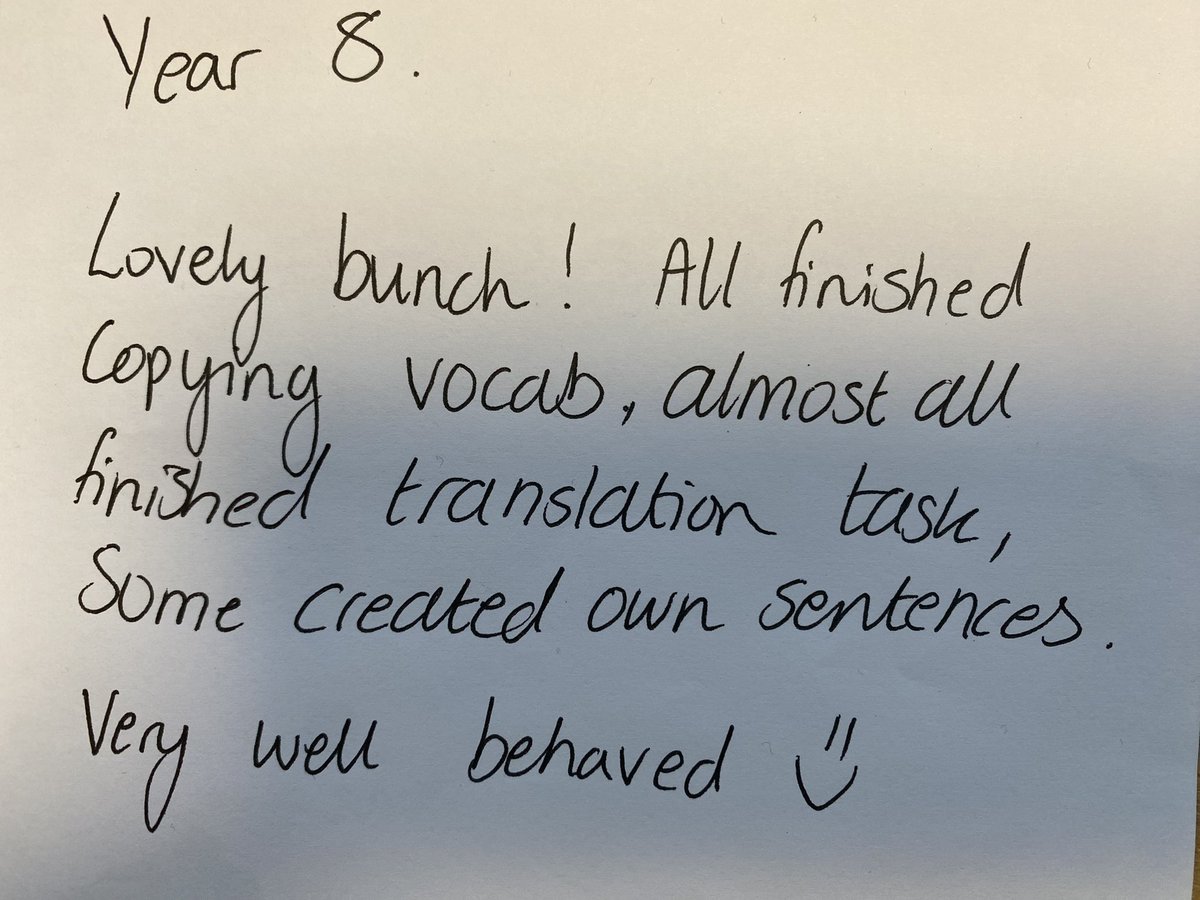 Year 8.
Lovely bunch! All finished
Copying vocab, almost all
finished translation task,
Some created own sentences.
Very well behaved